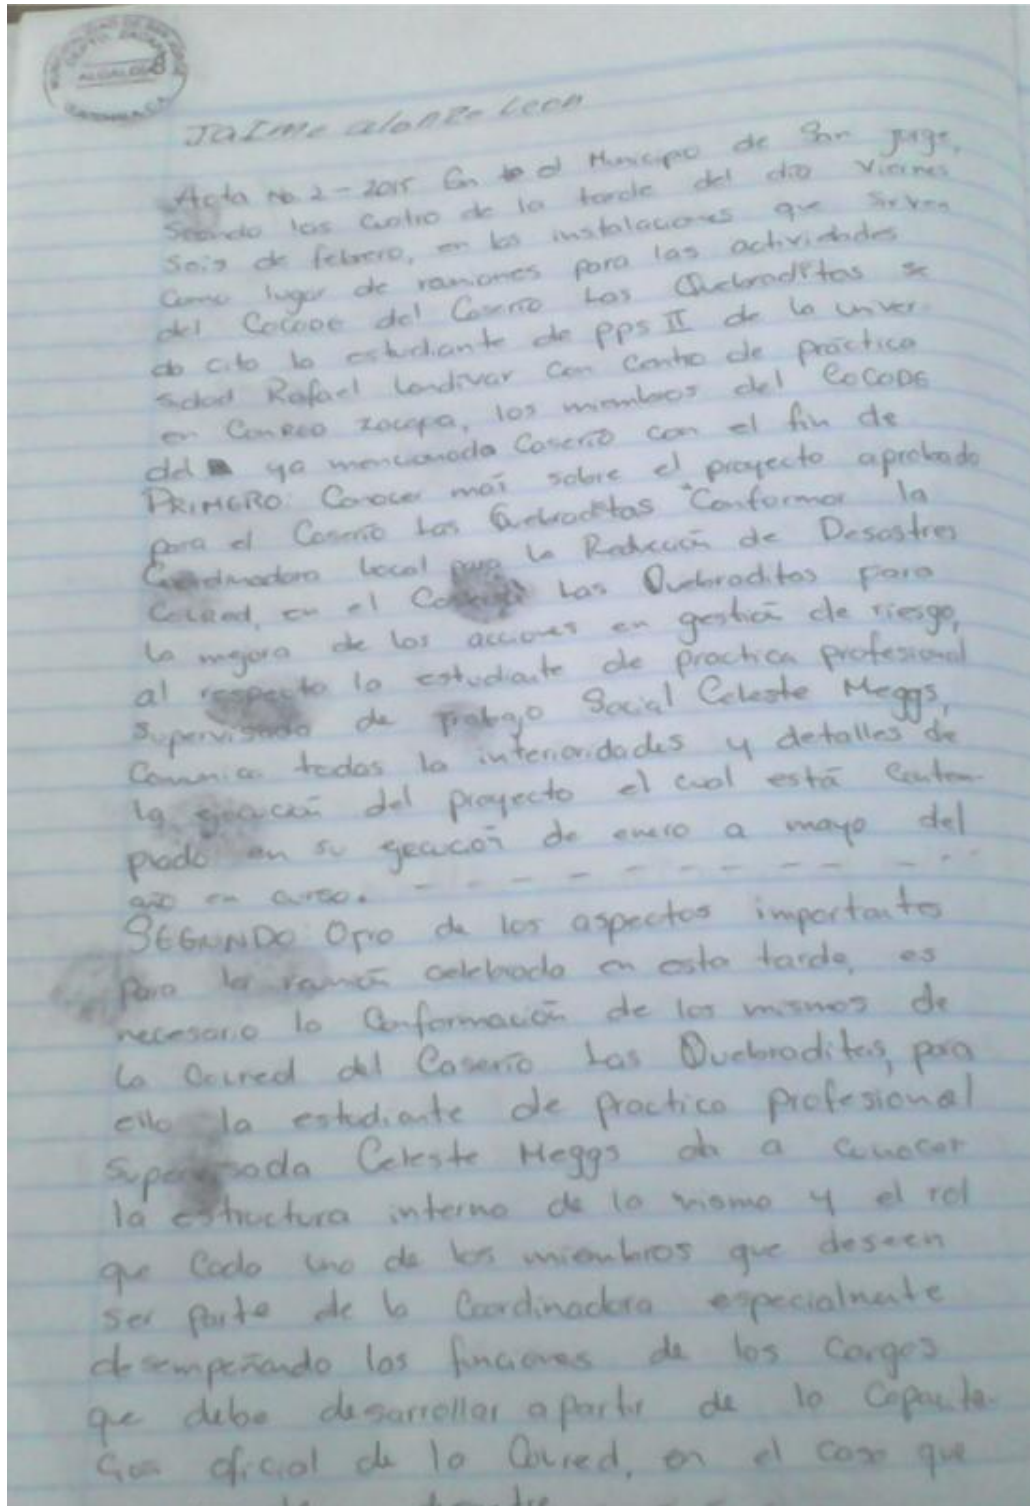 ALCALDE
Jaime alonzo Leon
Acta No. 2-2015 En el Municipio de San Jorge,
Siendo las Cuatro de la tarde del dia Viernes
Seis de febrero, en las instalaciones que sirven
Como lugar de reuniones para las actividades
del COCODE del Caserio Las Quebraditas se
do cito la estudiante de PPS II de la univer
sidad Rafael Landivar con Centro de práctica
en Conred Zacapa, los miembros del COCODE
del ya mencionado Caserio con el fin de
PRIMERO: Conocer mas sobre el proyecto aprobado
para el Caserio Las Quebraditas "Conformar la
Coordinadora Local para la Reducción de Desastres
Colred, en el Caserio Las Quebraditas para
la mejora de las acciones en gestión de riesgo,
al respecto la estudiante de practica profesional
Supervisada de trabajo Social Celeste Meggs,
Comunica todas la interioridades y detalles de
la ejecución del proyecto el cual está Contem-
plado en su ejecucón de enero a mayo del
año en curso. - - - - - - - - - -
SEGUNDO: Otro de los aspectos importantes
Para la reunión celebrada en esta tarde, es
necesario la Conformación de los mismos de
la Colred del Caserio Las Quebraditas, para
ello la estudiante de practica profesional
Supervisada Celeste Meggs da a conocer
la estructura interna de la misma y el rol
que Cada uno de los miembros que deseen
ser parte de la Coordinadora especialmente
desempeñando las funciones de los Cargos
que debe desarrollar apartir de la Capacita-
Cion oficial de la Colred, en el caso que